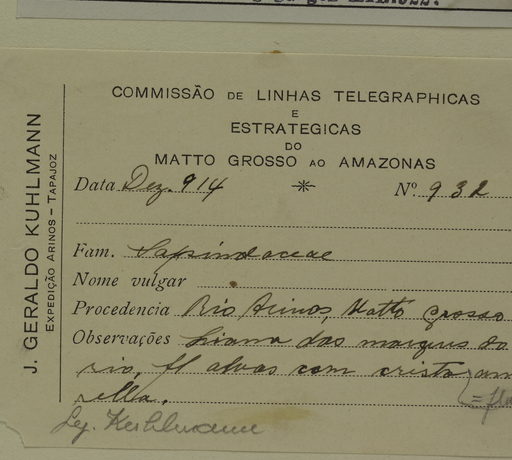 COMMISSÃO DE LINHAS TELEGRAPHICAS
E
ESTRATEGICAS
DO
MATTO GROSSO AO AMAZONAS
J. GERALDO KUHLMANN
EXPEDIÇÃO ARINOS – TAPAJOZ
Data Dez. 914 Nº. 932
Fam. Sapindaceae
Nome vulgar
Procedencia Rio Arinos, Matto Grosso
Observações Liana das margens do
rio, fl alvas com crista am
rella.
Leg. Kuhlmann